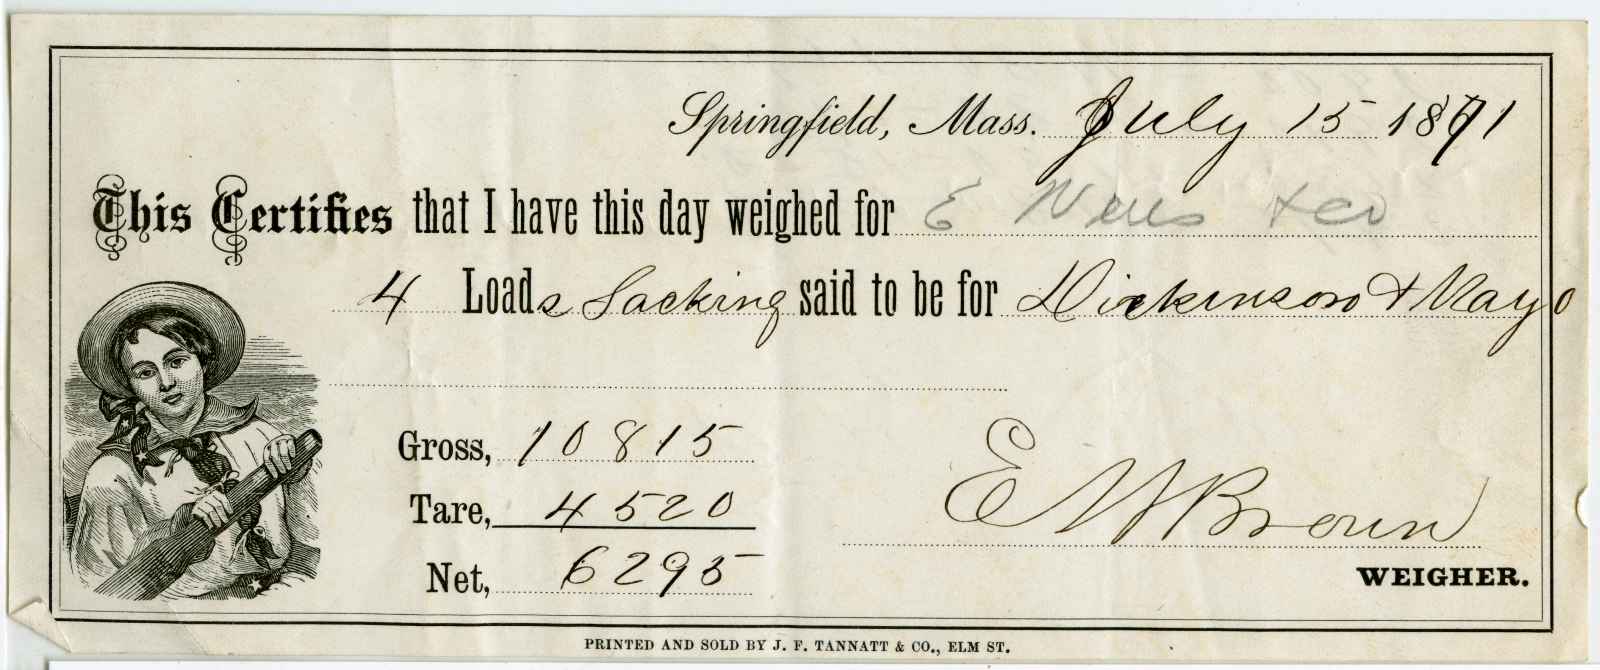 Springfield, Mass. July 15 1871
This Certifies that I have this day weighed for E Wells & co
4 Loads Sacking said to be for Dickinson & Mayo
Gross, 10815
Tare, 4520
Net, 6295
E W Brown
WEIGHER.
PRINTED AND SOLD BY J. F. TANNATT & CO., ELM ST.